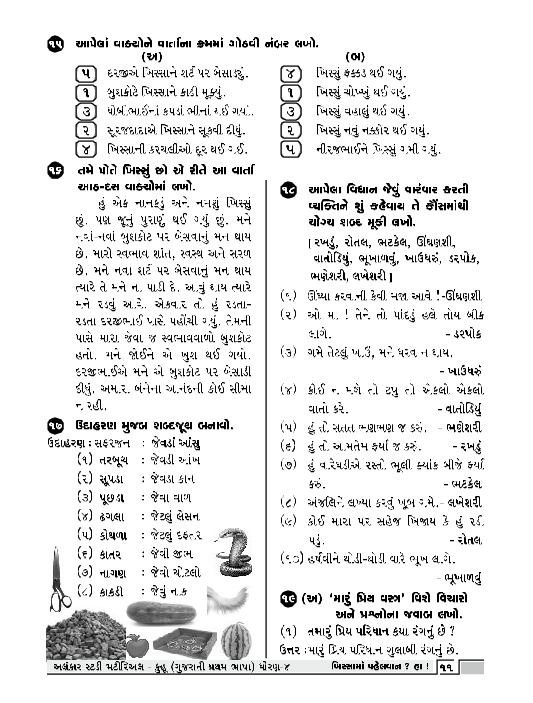 ૧૫ આપેલાં વાક્યોને વાર્તાના ક્રમમાં ગોઠવી નંબર લખો.
(અ)
૫ દરજીએ ખિસ્સાને શર્ટ પર બેસાડ્યું.
૧ બુશકોટે ખિસ્સાને કાઢી મૂક્યું.
૩ ધોબીભાઈનાં કપડાં ભીનાં થઈ ગયાં.
૨ સૂરજદાદાએ ખિસ્સાને સૂકવી દીધું.
૪ ખિસ્સાની કરચલીઓ દૂર થઈ ગઈ.
(બ)
૪ ખિસ્સું ફક્કડ થઈ ગયું.
૧ ખિસ્સું ચોખ્ખું થઈ ગયું.
૩ ખિસ્સું વહાલું થઈ ગયું.
૨ ખિસ્સું નવું નક્કોર થઈ ગયું.
૫ નીરજભાઈને ખિસ્સું ગમી ગયું.
૧૬ તમે પોતે ખિસ્સું છો એ રીતે આ વાર્તા
આઠ-દસ વાક્યોમાં લખો.
હું એક નાનકડું અને નમણું ખિસ્સું
છું. પણ જૂનું પુરાણું થઈ ગયું છું. મને
નવાં-નવાં બુશકોટ પર બેસવાનું મન થાય
છે. મારો સ્વભાવ શાંત, સ્વસ્થ અને સરળ
છે. મને નવા શર્ટ પર બેસવાનું મન થાય
ત્યારે તે મને ના પાડી દે. આવું થાય ત્યારે
મને રડવું આવે. એકવાર તો હું રડતા-
રડતા દરજીભાઈ પાસે પહોંચી ગયું. તેમની
પાસે મારા જેવા જ સ્વભાવવાળો બુશકોટ
હતો. મને જોઈને એ ખુશ થઈ ગયો.
દરજીભાઈએ મને એ બુશકોટ પર બેસાડી
દીધું. અમારા બંનેના આનંદની કોઈ સીમા
ન રહી.
૧૭ ઉદાહરણ મુજબ શબ્દજૂથ બનાવો.
ઉદાહરણ : સફરજન : જેવડાં આંસુ
(૧) તરબૂચ : જેવડી આંખ
(૨) સૂપડા : જેવડા કાન
(૩) પૂછડા : જેવા વાળ
(૪) ઢગલા : જેટલું લેસન
(૫) કોથળા : જેટલું દફતર
(૬) કાતર : જેવી જીભ
(૭) નાગણ : જેવો ચોટલો
(૮) કાકડી : જેવું નાક
૧૮ આપેલા વિધાન જેવું વારંવાર કરતી
વ્યક્તિને શું કહેવાય તે કૌંસમાંથી
યોગ્ય શબ્દ મૂકી લખો.
[રખડું, રોતલ, ભટકેલ, ઊંઘણશી,
વાતોડિયું, ભૂખાળવું, ખાઉધરું, ડરપોક,
ભણેશરી, લખેશરી]
(૧) ઊંઘ્યા કરવાની કેવી મજા આવે !-ઊંઘણશી
(૨) ઓ મા ! તેને તો પાંદડું હલે તોય બીક
લાગે. - ડરપોક
(૩) ગમે તેટલું ખાઉં, મને ધરવ ન થાય.
- ખાઉધરું
(૪) કોઈ ન મળે તો ટપુ તો એકલો એકલો
વાતો કરે. - વાતોડિયું
(૫) હું તો સતત ભણભણ જ કરું. - ભણેશરી
(૬) હું તો આમતેમ ફર્યા જ કરું. - રખડું
(૭) હું વારેઘડીએ રસ્તો ભૂલી ક્યાંક બીજે ફર્યા
કરું. - ભટકેલ
(૮) અંજલિને લખ્યા કરવું ખૂબ ગમે.- લખેશરી
(૯) કોઈ મારા પર સહેજ ખિજાય કે હું રડી
પડું. - રોતલ
(૧૦) હર્ષવીને થોડી-થોડી વારે ભૂખ લાગે.
- ભૂખાળવું
૧૯ (અ) 'મારું પ્રિય વસ્ત્ર' વિશે વિચારો
અને પ્રશ્નોના જવાબ લખો.
(૧) તમારું પ્રિય પરિધાન કયા રંગનું છે ?
ઉત્તર :મારું પ્રિય પરિધાન ગુલાબી રંગનું છે.
અલંકાર સ્ટડી મટીરિઅલ - કુહૂ (ગુજરાતી પ્રથમ ભાષા) ધોરણ-૪
ખિસ્સામાં પહેલવાન ? હા ! ૧૧